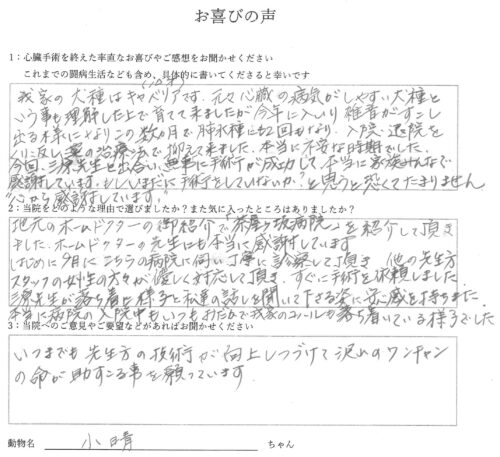 お喜びの声
1：心臓手術を終えた率直なお喜びやご感想をお聞かせください
これまでの闘病生活なども含め、具体的に書いてくださると幸いです
我家の犬種はキャバリアです。元々心臓の病気がしやすい犬種と
いう事も理解した上で育てて来ましたが今年に入り雑音がすこし
出る様になりこの数カ月で肺水腫にも2回もなり、入院、退院を
くり返し薬の治療のみで抑えて来ました。本当に不安な時期でした。
今回、三原先生と出合い、無事に手術が成功して、本当に家族みんなで
感謝しています。もしいまだに手術をしていないか？と思うと恐くてたまりません
"心から感謝しています。"
2：当院をどのような理由で選びましたか？また気に入ったところはありましたか？
地元のホームドクターの御紹介で「茶屋ヶ坂病院」を紹介して頂き
ました。ホームドクターの先生にも本当に感謝しています
はじめに9月にこちらの病院に伺い丁寧に診察して頂き、他の先生方
スタッフの女性の方々が優しく対応して頂き、すぐに手術を依頼しました。
三原先生が落ち着た様子と私達の話しを聞いて下さる姿に安心感を持ちました。
本当に病院の入院中もいつもおだやかで我家のコールも落ち着いている様子でした
3：当院へのご意見やご要望などがあればお聞かせください
いつまでも先生方の技術が向上しつづけて沢山のワンチャン
の命が助すこる事を願っています。
動物名 小晴 ちゃん